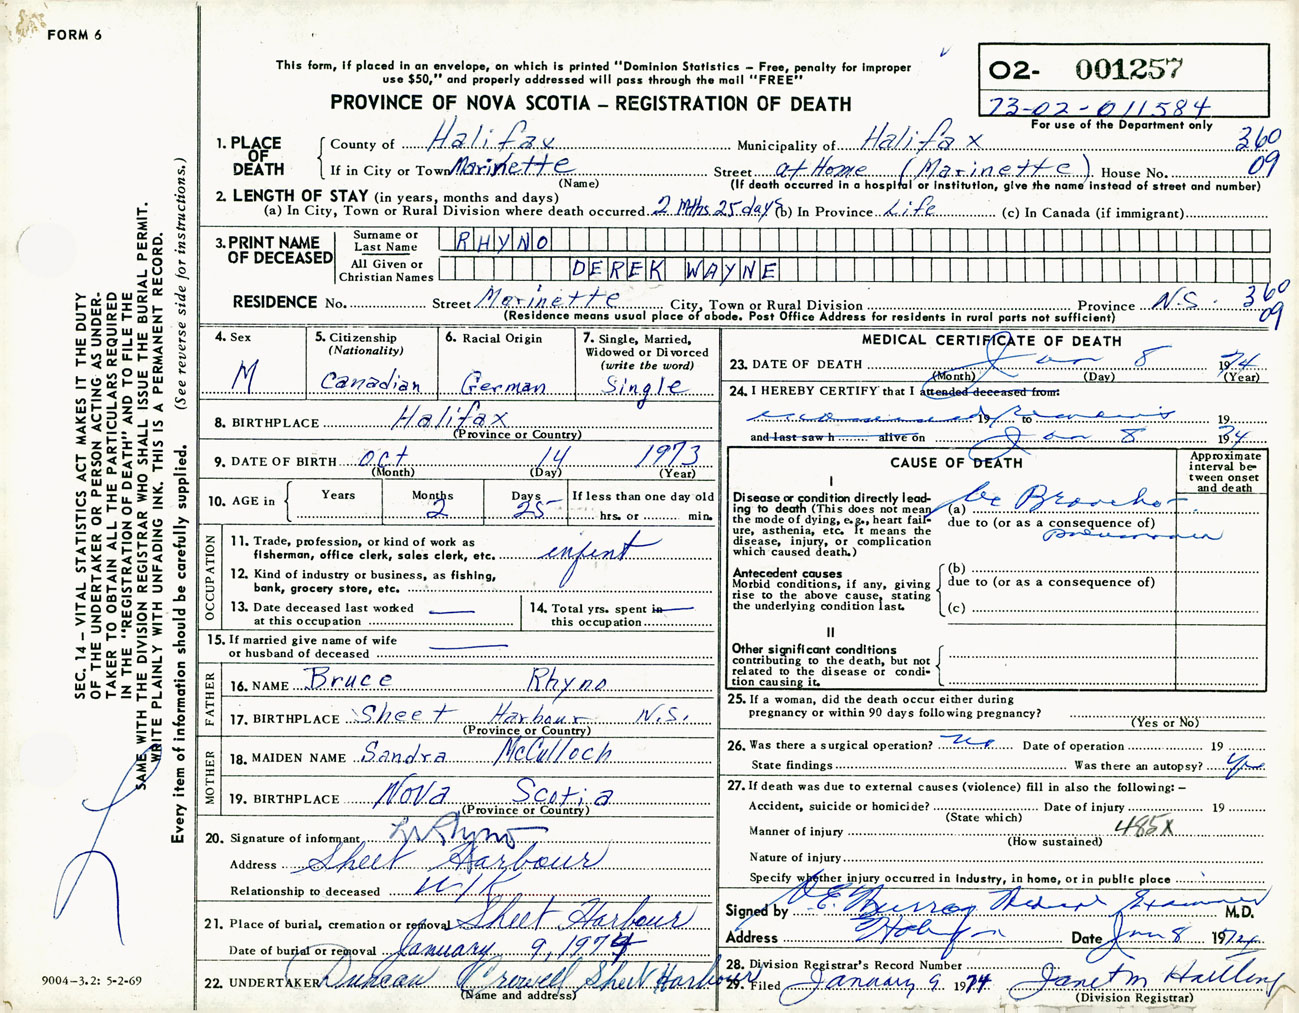 FORM 6
This form, if placed in an envelope, on which is printed "Dominion Statistics – Free, penalty for improper
use $50," and properly addressed will pass through the mail "FREE"
PROVINCE OF NOVA SCOTIA – REGISTRATION OF DEATH
02- 001257
73-02-011584
For use of the Department only
SEC. 14 – VITAL STATISTICS ACT MAKES IT THE DUTY
OF THE UNDERTAKER OR PERSON ACTING AS UNDER-
TAKER TO OBTAIN ALL THE PARTICULARS REQUIRED
IN THE "REGISTRATION OF DEATH" AND TO FILE THE
SAME WITH THE DIVISION REGISTRAR WHO SHALL ISSUE THE BURIAL PERMIT.
WRITE PLAINLY WITH UNFADING INK. THIS IS A PERMANENT RECORD.
Every item of information should be carefully supplied. (See reverse side for instructions.)
1. PLACE OF DEATH
County of Halifax Municipality of Halifax 360
If in City or Town Marinette Street at Home (Marinette) House No. 09
(Name) (If death occurred in a hospital or institution, give the name instead of street and number)
2. LENGTH OF STAY (in years, months and days)
(a) In City, Town or Rural Division where death occurred 2 Mths 25 days (b) In Province Life (c) In Canada (if immigrant)
3. PRINT NAME OF DECEASED
Surname or Last Name RHYNO
All Given or Christian Names DEREK WAYNE
RESIDENCE No. Street Marinette City, Town or Rural Division Province N.S. 360
09
(Residence means usual place of abode. Post Office Address for residents in rural parts not sufficient)
4. Sex M
5. Citizenship (Nationality) Canadian
6. Racial Origin German
7. Single, Married, Widowed or Divorced (write the word) Single
8. BIRTHPLACE Halifax
(Province or Country)
9. DATE OF BIRTH Oct 14 1973
(Month) (Day) (Year)
10. AGE in Years Months 2 Days 25 If less than one day old
hrs. or min.
OCCUPATION
11. Trade, profession, or kind of work as
fisherman, office clerk, sales clerk, etc. infent
12. Kind of industry or business, as fishing,
bank, grocery store, etc.
13. Date deceased last worked
at this occupation
14. Total yrs. spent in
this occupation
15. If married give name of wife
or husband of deceased
FATHER
16. NAME Bruce Rhyno
17. BIRTHPLACE Sheet Harbour N.S.
(Province or Country)
MOTHER
18. MAIDEN NAME Sandra McCulloch
19. BIRTHPLACE Nova Scotia
(Province or Country)
20. Signature of informant Rhyno
Address Sheet Harbour
Relationship to deceased U/K
21. Place of burial, cremation or removal Sheet Harbour
Date of burial or removal January 9, 1974
22. UNDERTAKER Duncan Crowell Sheet Harbour
(Name and address)
9004-3.2: 5-2-69
MEDICAL CERTIFICATE OF DEATH
23. DATE OF DEATH Jan 8 1974
(Month) (Day) (Year)
24. I HEREBY CERTIFY that I attended deceased from:
19 to remains 19
and last saw h alive on Jan 8 1974
CAUSE OF DEATH
Approximate interval between onset and death
I
Disease or condition directly lead-
ing to death (This does not mean
the mode of dying, e.g., heart fail-
ure, asthenia, etc. It means the
disease, injury, or complication
which caused death.)
(a) Broncho-
due to (or as a consequence of)
pneumonia
Antecedent causes
Morbid conditions, if any, giving
rise to the above cause, stating
the underlying condition last.
(b)
due to (or as a consequence of)
(c)
II
Other significant conditions
contributing to the death, but not
related to the disease or condi-
tion causing it.
25. If a woman, did the death occur either during
pregnancy or within 90 days following pregnancy?
(Yes or No)
26. Was there a surgical operation? no Date of operation 19
State findings Was there an autopsy? Yes
27. If death was due to external causes (violence) fill in also the following: –
Accident, suicide or homicide? Date of injury 19
(State which)
Manner of injury 485X
(How sustained)
Nature of injury
Specify whether injury occurred in industry, in home, or in public place
Signed by D.E. Murray Medical Examiner M.D.
Address Date Jan 8 1974
28. Division Registrar's Record Number
29. Filed January 9 1974 Janet M Hartling
(Division Registrar)